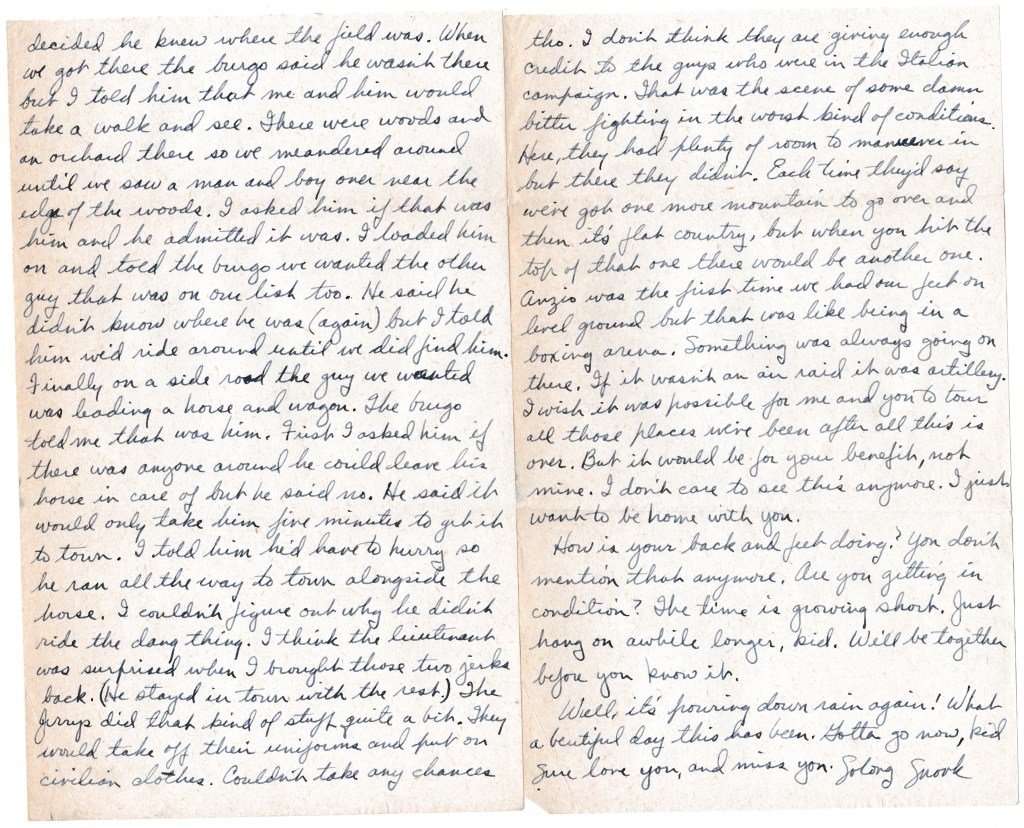 decided he knew where the field was. When
we got there the burgo said he wasn't there
but I told him that me and him would
take a walk and see. There were woods and
an orchard there so we meandered around
until we saw a man and boy over near the
edge of the woods. I asked him if that was
him and he admitted it was. I loaded him
on and told the burgo we wanted the other
guy that was on our list too. He said he
didn't know where he was (again) but I told
him we'd ride around until we did find him.
Finally on a side road the guy we wanted
was leading a horse and wagon. The burgo
told me that was him. First I asked him if
there was anyone around he could leave his
horse in care of but he said no. He said it
would only take him five minutes to get it
to town. I told him he'd have to hurry so
he ran all the way to town alongside the
horse. I couldn't figure out why he didn't
ride the dang thing. I think the lieutenant
was surprised when I brought those two jerks
back. (He stayed in town with the rest.) The
Jerrys did that kind of stuff quite a bit. They
would take off their uniforms and put on
civilian clothes. Couldn't take any chances
tho. I don't think they are giving enough
credit to the guys who were in the Italian
campaign. That was the scene of some damn
bitter fighting in the worst kind of conditions.
Here, they had plenty of room to manuever in
but there they didn't. Each time they'd say
we've got one more mountain to go over and
then it's flat country, but when you hit the
top of that one there would be another one.
Anzio was the first time we had our feet on
level ground but that was like being in a
boxing arena. Something was always going on
there. If it wasn't an air raid it was artillery.
I wish it was possible for me and you to tour
all those places we've been after all this is
over. But it would be for your benefit, not
mine. I don't care to see this anymore. I just
want to be home with you.
How is your back and feet doing? You don't
mention that anymore. Are you getting in
condition? The time is growing short. Just
hang on awhile longer, kid. We'll be together
before you know it.
Well, it's pouring down rain again! What
a beutiful day this has been. Gotta go now, kid
Sure love you, and miss you. Solong Snook